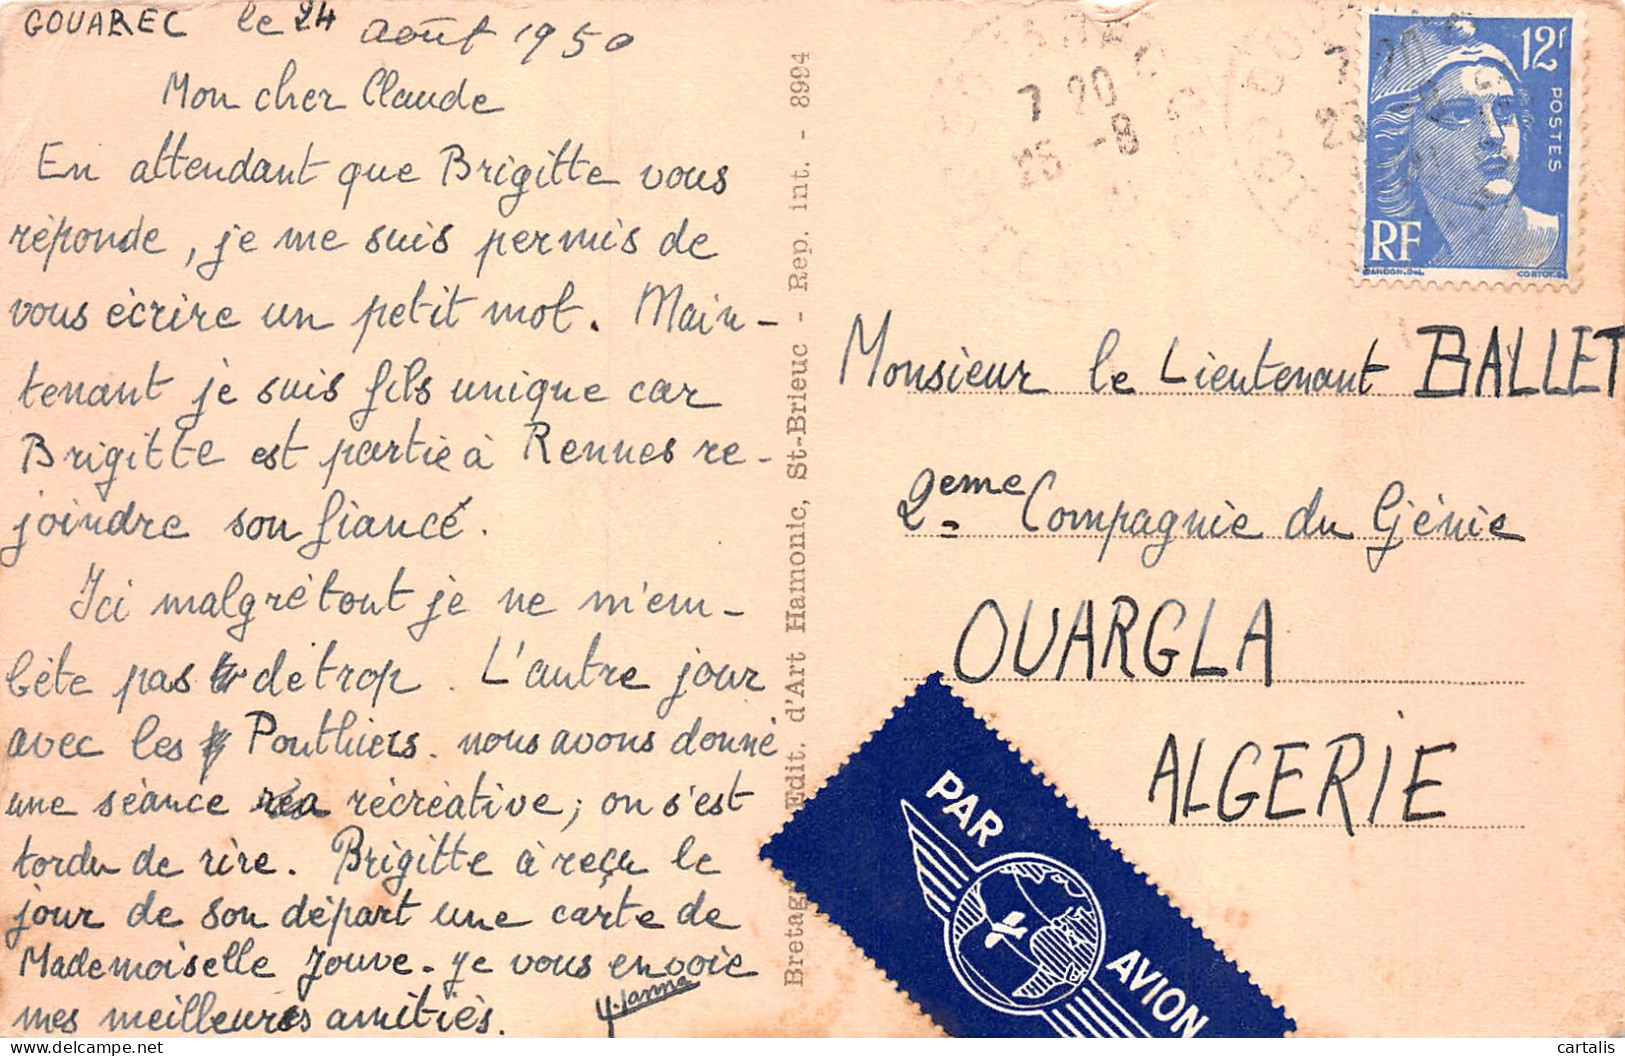 GOUAREC le 24 août 1950
Mon cher Claude
En attendant que Brigitte vous
réponde, je me suis permis de
vous écrire un petit mot. Main-
tenant je suis fils unique car
Brigitte est partie à Rennes re-
joindre son fiancé.
Ici malgré tout je ne m'em-
bête pas de trop. L'autre jour
avec les Pouthiers. nous avons donné
une séance réa récréative; on s'est
tordu de rire. Brigitte à reçu le
jour de son départ une carte de
Mademoiselle Jouve. Je vous envoie
mes meilleurs amitiés.
Bretagne Edit. d'Art Hamonic, St-Brieuc - Rep. int. - 8994
7 20
25 -8
12f
POSTES
RF
GANDON.DEL
CORTOT.SC
Monsieur le Lieutenant BALLET
2eme Compagnie du Génie
OUARGLA
ALGERIE
PAR
AVION
cartalis